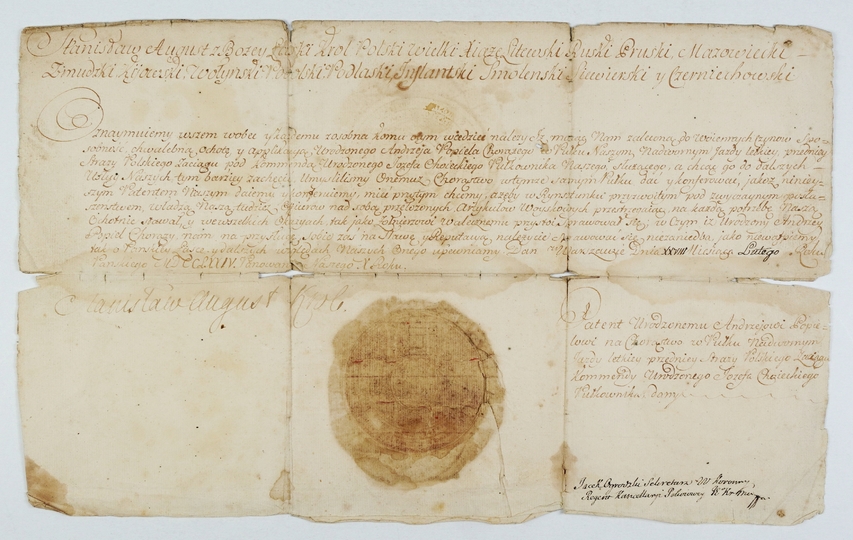 Stanisław August z Bożey Łaski Krol Polski Wielki Xiąże Litewski Ruski Pruski, Mazowiecki
Zmudzki Kijowski, Wołynski Podolski Podlaski Inflantski Smolenski Siewierski y Czerniechowski
Oznaymuiemy wszem wobec y każdemu zosobna komu otym wiedzieć należy Iż maiąc Nam zaleconą do Woiennych czynow Spo-
sobność, chwalebną ochotę y applikacyą Urodzonego Andrzeja Popiela Chorążego w Pułku Naszym Nadwornym Jazdy lekkiey przedniey
Straży Polskiego Zaciągu pod kommendą Urodzonego Jozefa Choieckiego Pułkownika Naszego a chcąc go do dalszych
Usług Naszych tym bardziey zachęcić Umyśliliśmy Onemuż Chorąstwo w tymże Pułku dać y konferować, jakoż ninieiy-
szym Patentem Naszym daiemy konferuiemy, mieć przytym chcemy, ażeby w Rynsztunku przyzwoitym pod zwyczaynym posłu-
szeństwem władzą Naszą tudzież nad sobą przełożonych Artykułow Woiskowych przestrzegaiąc na każdą potrzebę Naszą
Ochotnie stawał, y we wszelkich Okazyach tak jako sprawował się; w czym iż Urodzony Andrzey
Popiel Chorąży Nam na przysługę, sobie zaś na Sławę y Reputacyą należycie sprawować się niezaniedba, jako niewątpiemy
tak o Pańskiey Naszey Onego upewniamy. Dan w Dnia XXVIII Miesiąca Lutego Roku
Pańskiego MDCCLXXIV. Panowania Naszego X Roku.
Stanisław August Krol.
Patent Urodzonemu Andrzejowi Popie-
lowi na Chorąstwo w Pułku Nadwornym
Jazdy lekkiey przedniey Straży Polskiego Zaciągu
Kommendy Urodzonego Jozefa Choieckiego
Pułkownika dany
Jacek Ogrodzki Sekretarz W Koronny
Regent Kancellaryi Pokoiowey J K Mci